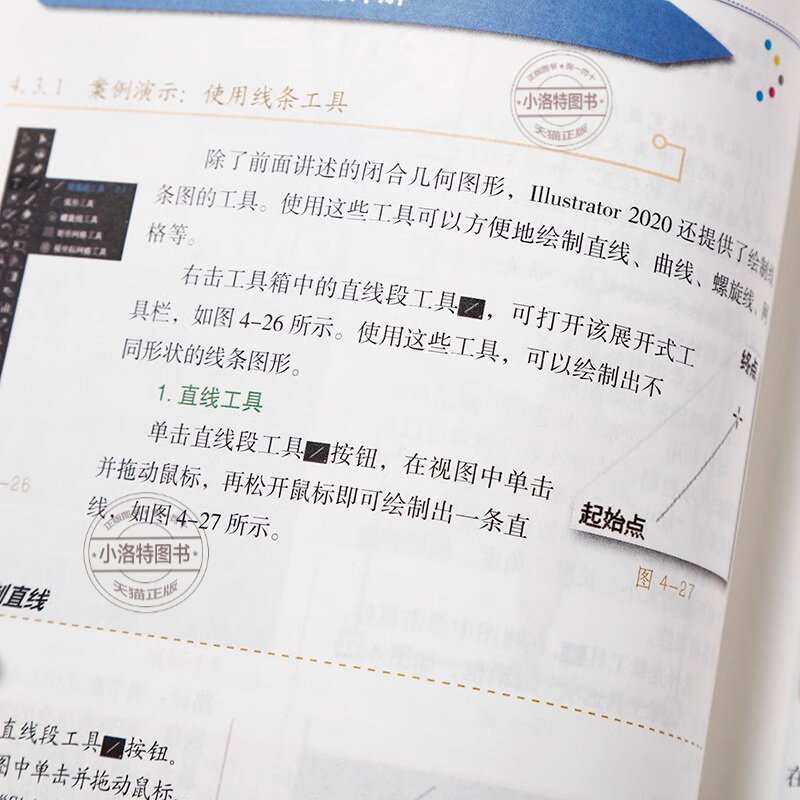 4.3.1 案例演示：使用线条工具
正版图书 假一罚十
小洛特图书
天猫正版
除了前面讲述的闭合几何图形，Illustrator 2020 还提供了绘制线
条图的工具。使用这些工具可以方便地绘制直线、曲线、螺旋线、网
格等。
弧形工具
螺旋线工具
矩形网格工具
极坐标网格工具
右击工具箱中的直线段工具，可打开该展开式工
具栏，如图 4-26 所示。使用这些工具，可以绘制出不
同形状的线条图形。
1. 直线工具
单击直线段工具按钮，在视图中单击
并拖动鼠标，再松开鼠标即可绘制出一条直
线，如图 4-27 所示。
终点
起始点
图 4-27
-26
小洛特图书
天猫正版
制直线
直线段工具按钮。
图中单击并拖动鼠标，
在